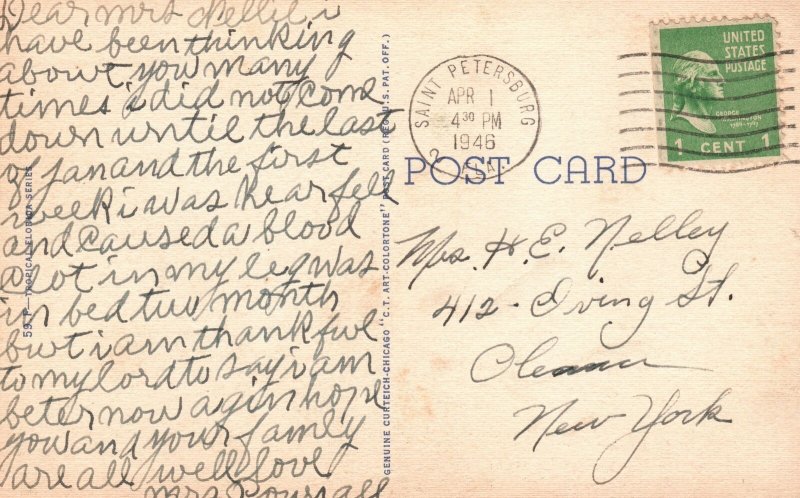 Dear mrs Nellie i
have been thinking
abowt you many
times i did not come
down until the last
of jan and the first
week i was hear fell
and caused a blood
clot in my leg was
in bed two month
bwt i am thankful
to my lord to say i am
beter now agin hope
you and your famly
are all well love
mrs
59.P—TROPICAL FLORIDA SERIES
GENUINE CURTEICH-CHICAGO "C.T. ART-COLORTONE" POST CARD (REG. U.S. PAT. OFF.)
SAINT PETERSBURG
APR 1
4 30 PM
1946
2 FLA.
UNITED
STATES
POSTAGE
GEORGE
WASHINGTON
1789-1797
1 CENT 1
POST CARD
Mrs. H. E. Nelley
412 - Irving St.
Olean
New York